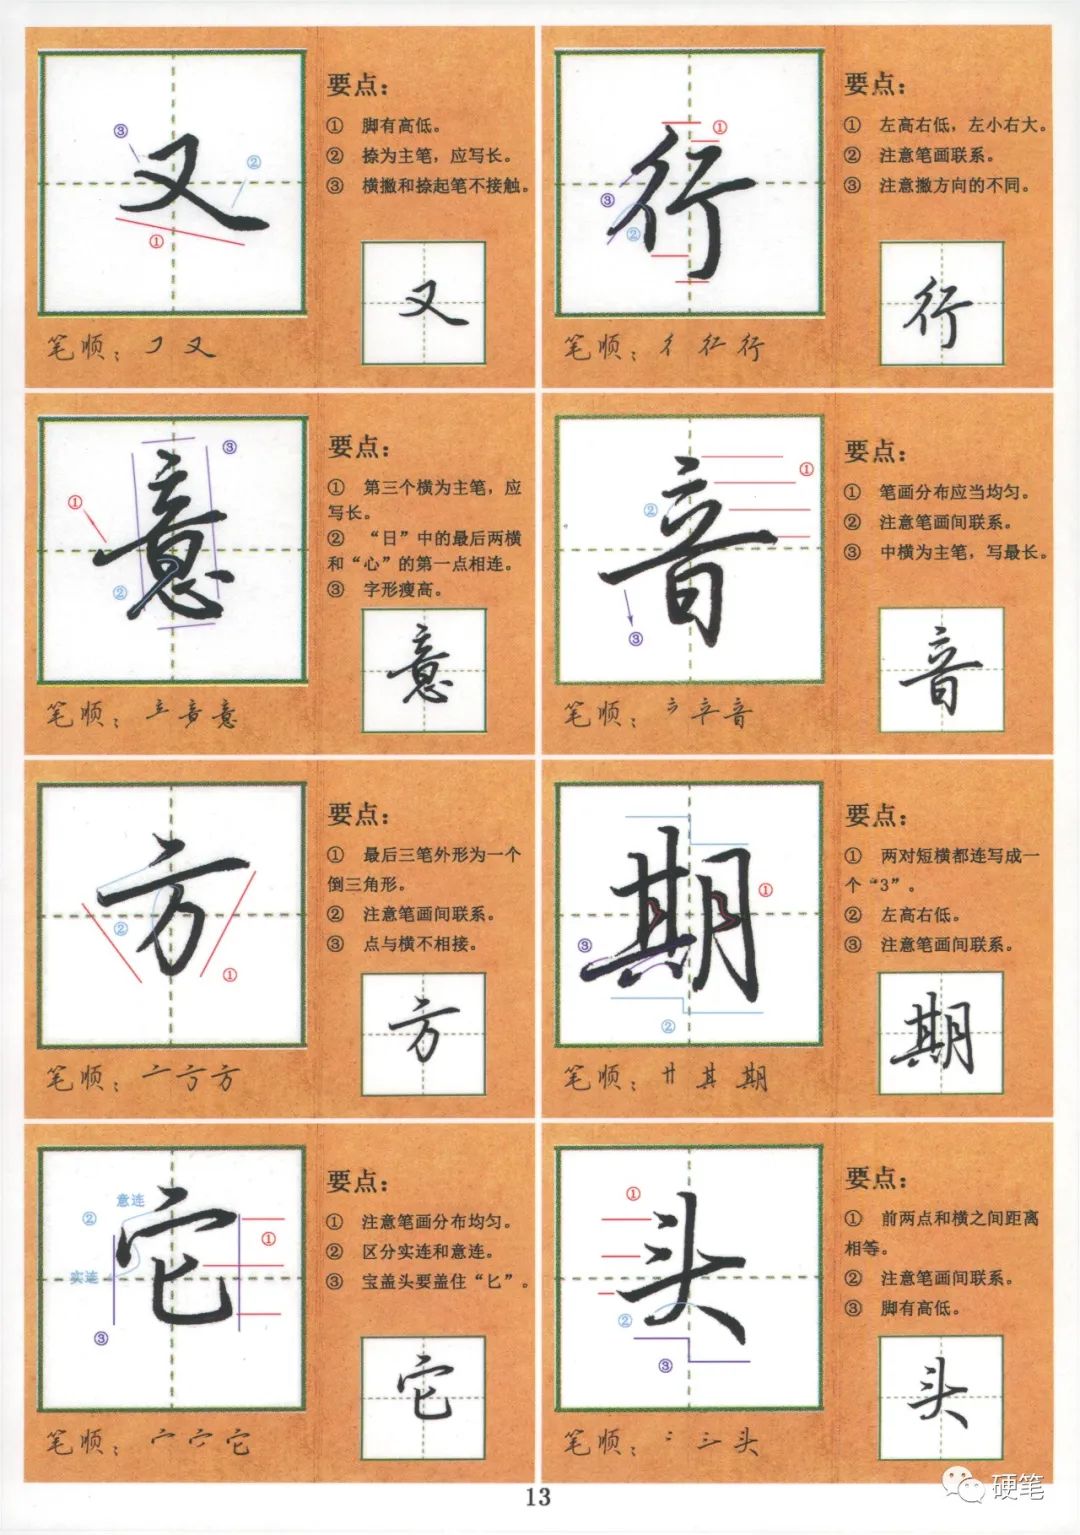 又
③
②
①
要点：
① 脚有高低。
② 捺为主笔，应写长。
③ 横撇和捺起笔不接触。
又
笔顺：㇇ 又
行
①
③
②
要点：
① 左高右低，左小右大。
② 注意笔画联系。
③ 注意撇方向的不同。
行
笔顺：彳 行
意
③
①
②
要点：
① 第三个横为主笔，应
写长。
② “日”中的最后两横
和“心”的第一点相连。
③ 字形瘦高。
意
笔顺：音 意
音
①
②
③
要点：
① 笔画分布应当均匀。
② 注意笔画间联系。
③ 中横为主笔，写最长。
音
笔顺：立 音
方
②
①
要点：
① 最后三笔外形为一个
倒三角形。
② 注意笔画间联系。
③ 点与横不相接。
方
笔顺：亠 方 方
期
①
③
②
要点：
① 两对短横都连写成一
个“3”。
② 左高右低。
③ 注意笔画间联系。
期
笔顺：廿 其 期
它
意连
②
①
实连
③
要点：
① 注意笔画分布均匀。
② 区分实连和意连。
③ 宝盖头要盖住“匕”。
它
笔顺：宀 它
头
①
②
③
要点：
① 前两点和横之间距离
相等。
② 注意笔画间联系。
③ 脚有高低。
头
笔顺：头
13
硬笔